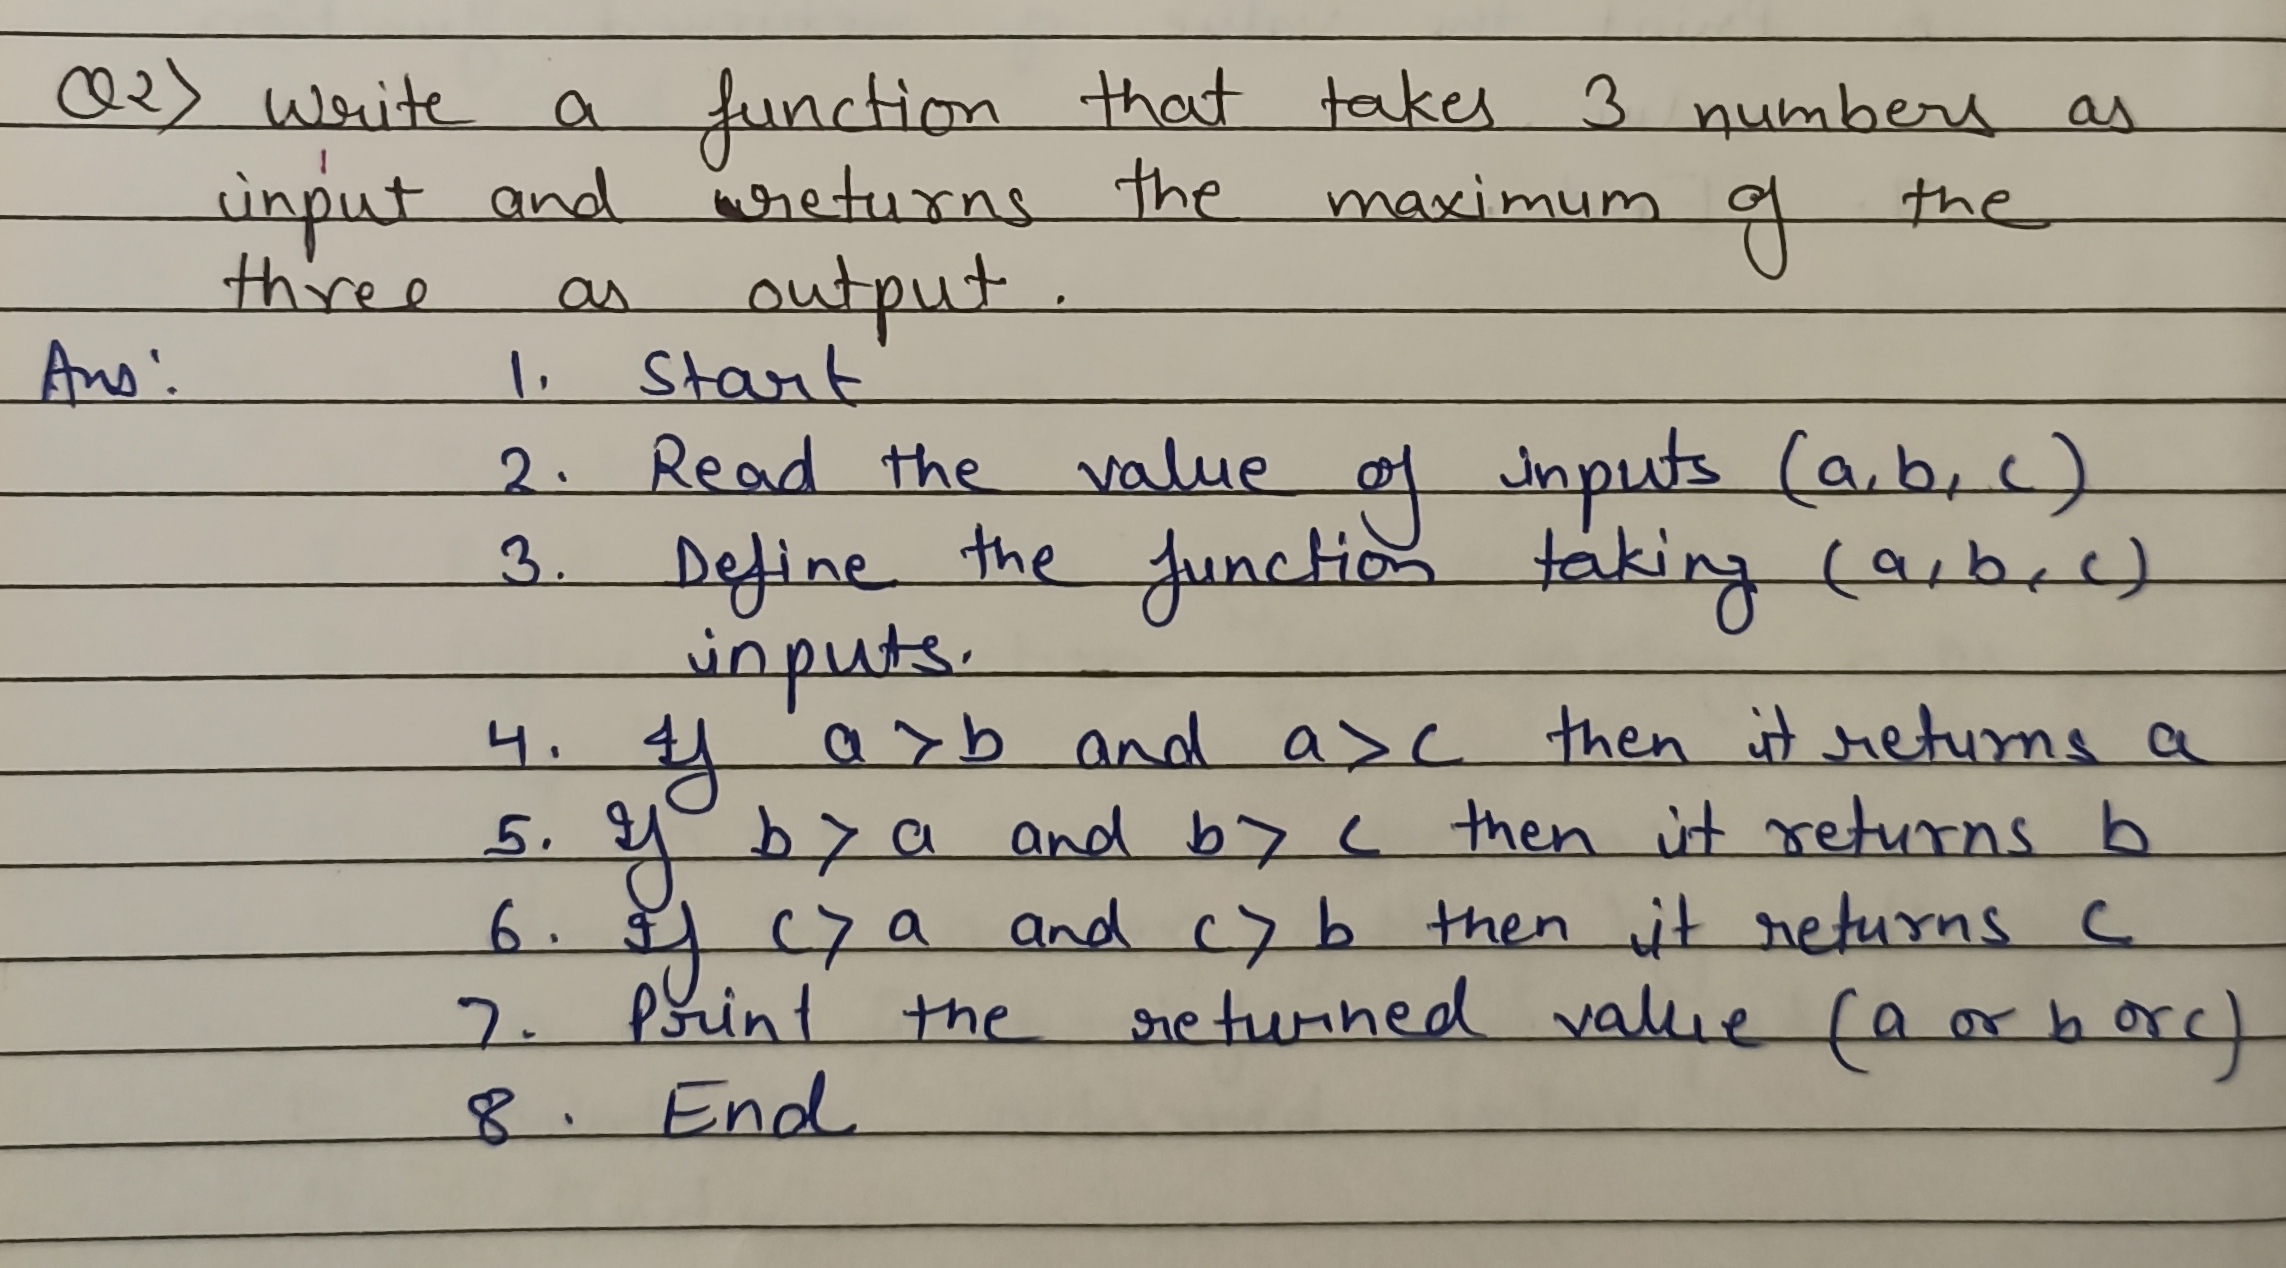 Q2) Write a function that takes 3 numbers as
input and returns the maximum of the
three as output.
Ans: 1. Start
2. Read the value of inputs (a, b, c)
3. Define the function taking (a, b, c)
inputs.
4. If a > b and a > c then it returns a
5. If b > a and b > c then it returns b
6. If c > a and c > b then it returns c
7. Print the returned value (a or b or c)
8. End